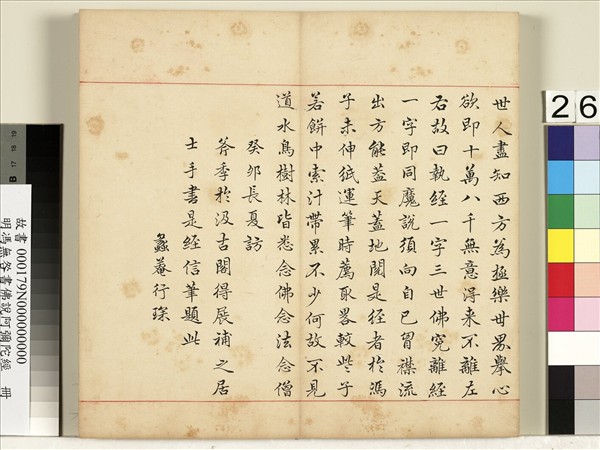 世人盡知西方為極樂世界舉心
欲即十萬八千無意得来不離左
右故曰執經一字三世佛冤離經
一字即同魔說須向自己胷襟流
出方能葢天葢地閱是經者於馮
子未伸紙運筆時薦取畧較些子
若餅中索汁帶累不少何故不見
道水鳥樹林皆悉念佛念法念僧
癸卯長夏訪
斧季於汲古閣得展補之居
士手書是經信筆題此
蠡菴行琛
26
故書 000179N000000000
明馮無咎書佛說阿彌陀經 冊